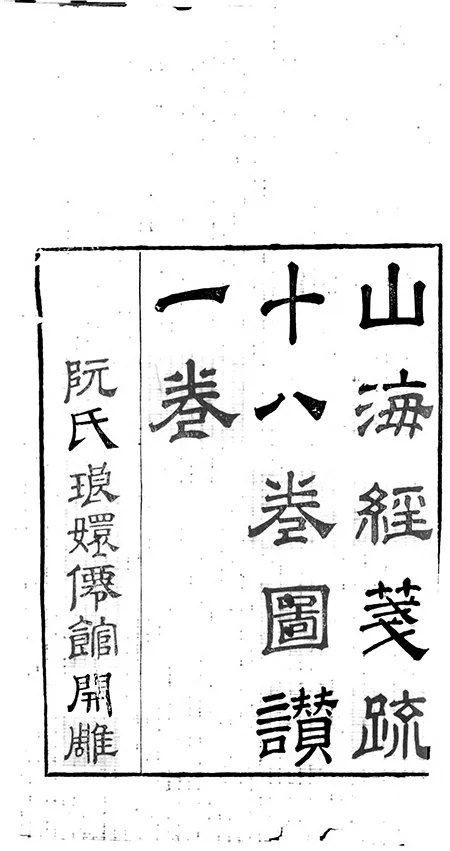 山海經箋疏
十八卷圖讃
一卷
阮氏琅嬛僊館開雕